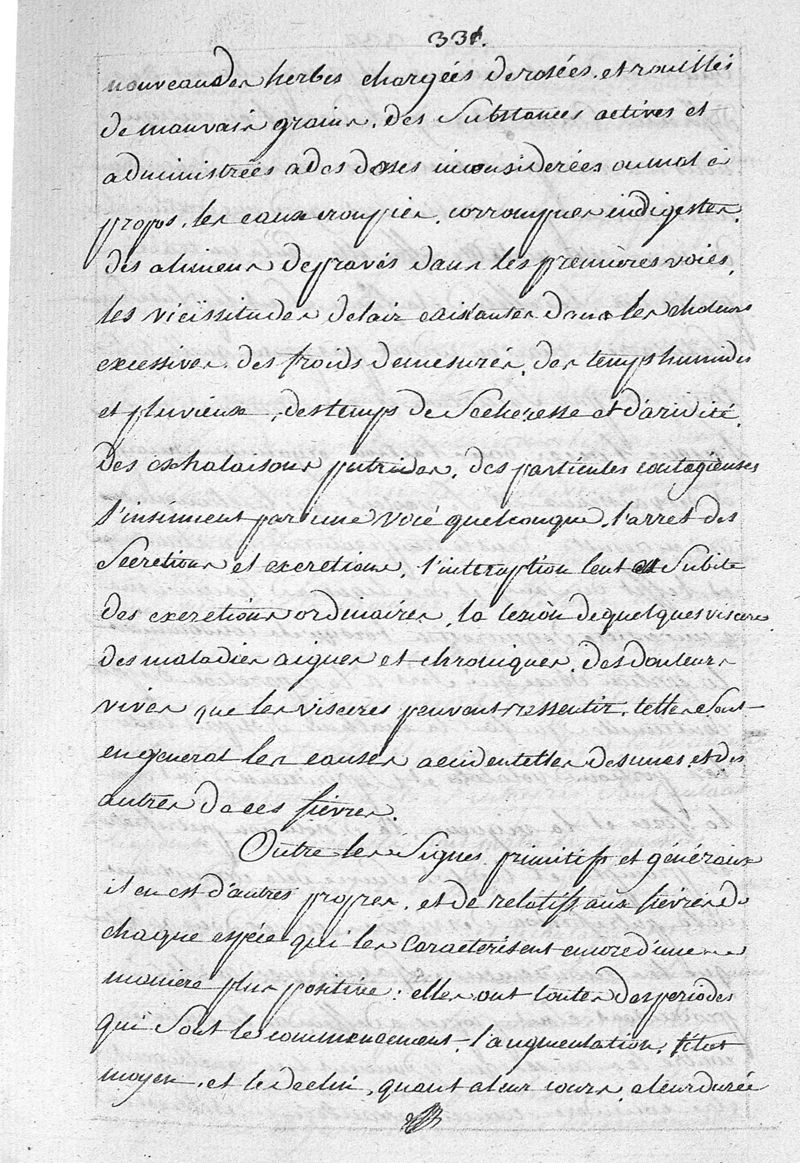 331.
nouveaux des herbes chargées de rosées, et rouillés
de mauvais grains, des Substances actives et
administrées a des doses inconsiderées ou mal à
propos, les eaux croupies, corrompues indigestes,
des alimens depravés dans les premières voies,
les vicissitudes de lair existantes dans les chaleurs
excessives des froids demesurés, des temps humides
et pluvieux, des temps de Sécheresse et d'aridité,
des exhalaisons putrides, des particules contagieuses
s'insinuent par une voie quelconque, l'arret des
Secretions et excretions, l'interuption lent et Subite
des excretions ordinaires, la lezion de quelques visceres
des maladies aigues et chroniques, des douleurs
vives que les visceres peuvent ressentir, telles Sont
en general les causes accidentelles des unes et des
autres de ces fièvres.
Outre les Signes primitifs et généraux
il en est d'autres propres, et de relatifs aux fièvres de
chaque espéce qui les caracterisent encore d'une
maniere plus positive : elles ont toutes des periodes
qui Sont le commencement, l'augmentation, l'état
moyen, et le declin, quant a leur cours, a leur durée